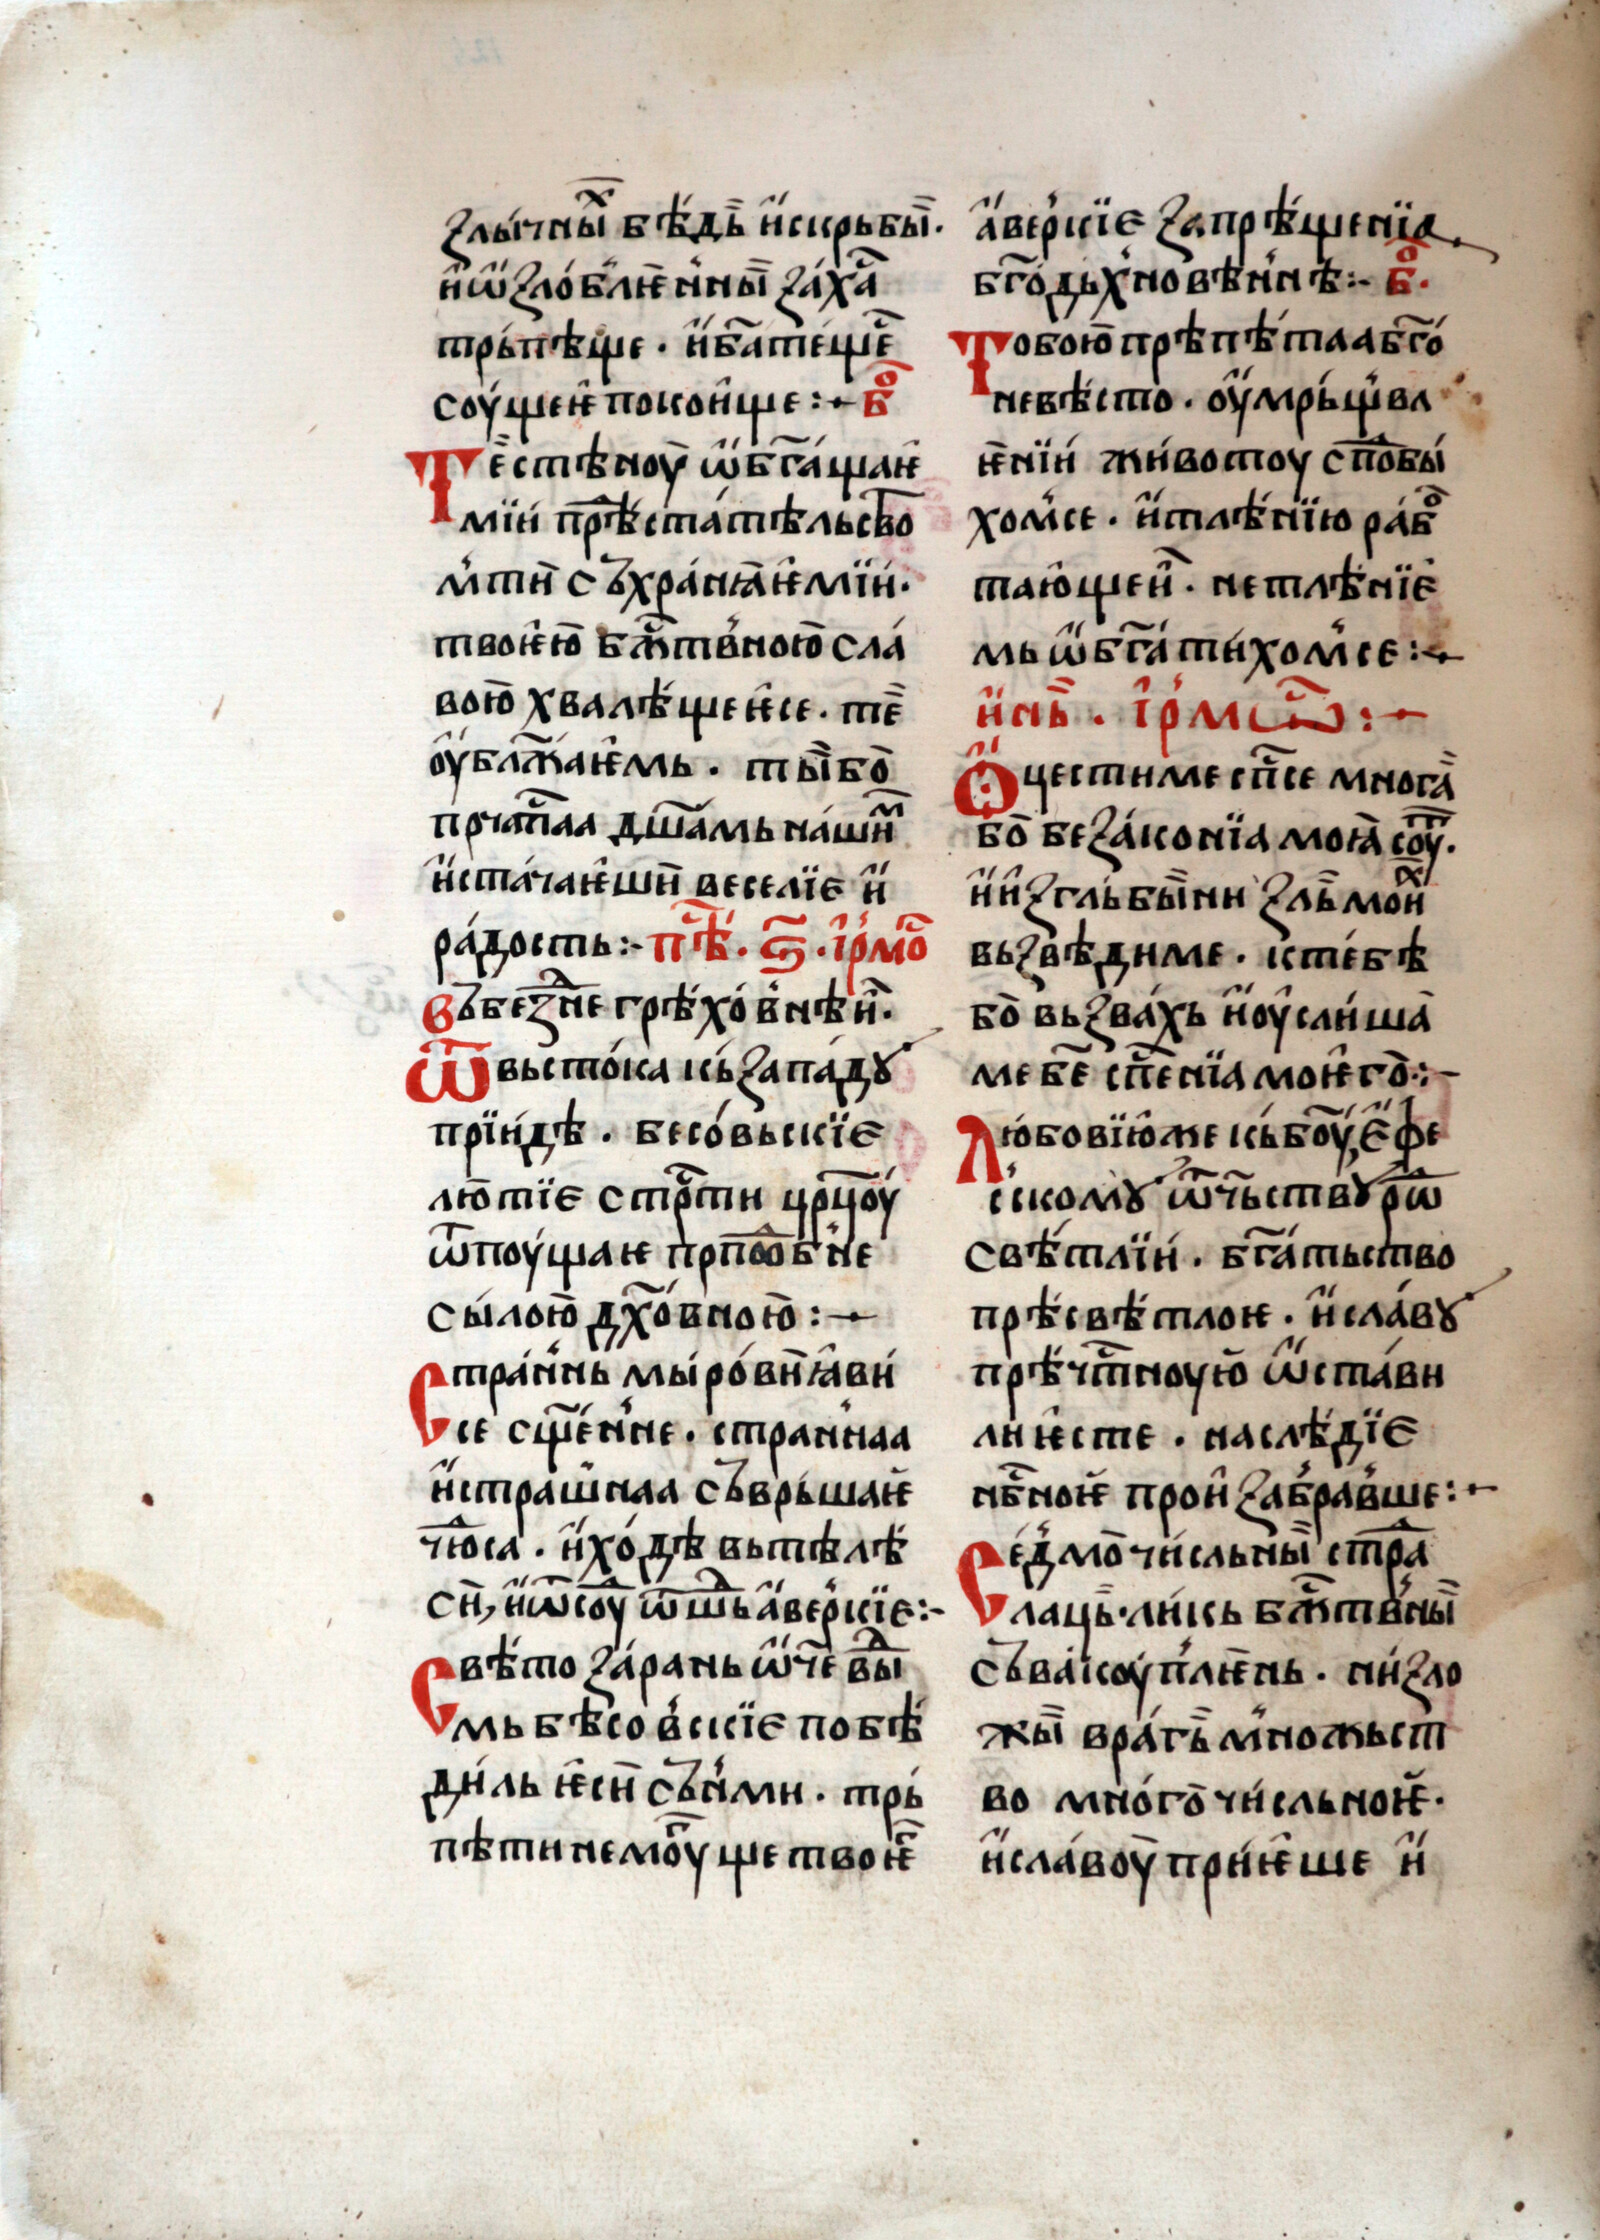 ꙁлы́чны̑ⷯ бѣ́дь̏ и҆скрьбы̏.
и҆ѡ҆ꙁло́блѥ́нны̏ ꙁа́хаⷭ҇
трьпѣ́ще. и҆ба҃те́щеⷭ҇
соу́щеѥ поко́ище :~ бⷪ҇
Те́стѣноу̏ ѡ҆бга҃́щаѥ
мїи прⷣѣста́тѣльство
мт҃и съхранꙗ́ѥмїи.
твоѥю̏ бжⷭ҇твною̏ сла́
вою̏ хвалѣ́щеѥсе. те̏
оу҆блж҃аѥмь. ты̏бо̏
прчⷭ҇таа дш҃амь на́шиⷨ
и҆ста́чаѥши̏ веселїе и҆
ра́дость :~ пⷭ҇ѣ. ѕ҃. і҆рмоⷭ҇
въбеꙁⷣне грѣхо́внѣи̏.
Ѿвьсто́ка кьꙁапа́дꙋ
прїи́дѣ. бесо́вьскїе
лю̏тїе стрⷭ҇ти црц҃оу́
ѿпоу́щаѥ прпⷣобне
сы́лою̏ дх҃о́вною̏ :~
Стра́ннь мы́ро́ви̏ꙗ҆ви́
се сщ҃е́нне. стра́ннаа
и҆стра́шнаа съврьшаѥ̏
чюⷣса. и҆хо́дѣ вьтѣлѣ́
си̏, и҆ѿсоуⷣ ѿшⷣь а҆ве́ркїе :~
Свѣ́то ꙁа́рань ѡ҆ч҃е выⷣ
мь бѣсо́вскїе побѣ́
ди́ль ѥси̏ съни́ми. трь́
пѣти немоⷢ҇у́ще твоѥⷢ҇
а҆ве́ркїе ꙁапрѣ́щенїа.
бг҃о́дьхновѣннѣ :~ бⷪ҇.
Тобою̏ прѣпѣ́таа бг҃о́
невѣ́сто. оу҆мрьщвл
ѥ̏нїи живо́тоу спⷣобы́
хомсе. и҆тлѣ́нїю ра́бⷪ
таю́щеи̏. нетлѣ́нїе́
мь ѡ҆бга҃ти́хомсе :~
и҆нь̏. і҆рмⷭ҇ѡ :~
Ѻ҆цестиме сп҃се многа̏
бо̏ беꙁа́конїа моꙗ̏ соуⷮ.
и҆и҆ꙁгльбы́ни ꙁль̏ моиⷯ
вьꙁвѣ́диме. кте́бѣ
бо̏ вьꙁва́хь и҆оу҆сли́ша̏
ме бе҃ сп҃се́нїа моѥго̏ :~
Любовїю́же кьбо҃у́, е҆фе
сскомꙋ ѿчьствꙋ рⷣѡ
свѣ́тлїи. бга҃тьство
прѣ́свѣ́тлоѥ. и҆сла́вꙋ
прѣчⷭ҇тноую̏ ѡ҆ста́ви
лиѥ́сте. наслѣ́дїе
нбⷭ҇ноѥ̏ прои҆ꙁа́бравше :~
Се́дмо̏чи́сльны̏ стрⷣа
лаць̏. ли́кь бжⷭ҇твны̏
съвькоу́плѥ̏нь. ни́ꙁло
жы̏ вра́гь̏ мно́жьст
во мно́го̏чи́сльноѥ̏.
и҆сла́воу̏ при́ѥ҆ше и҆